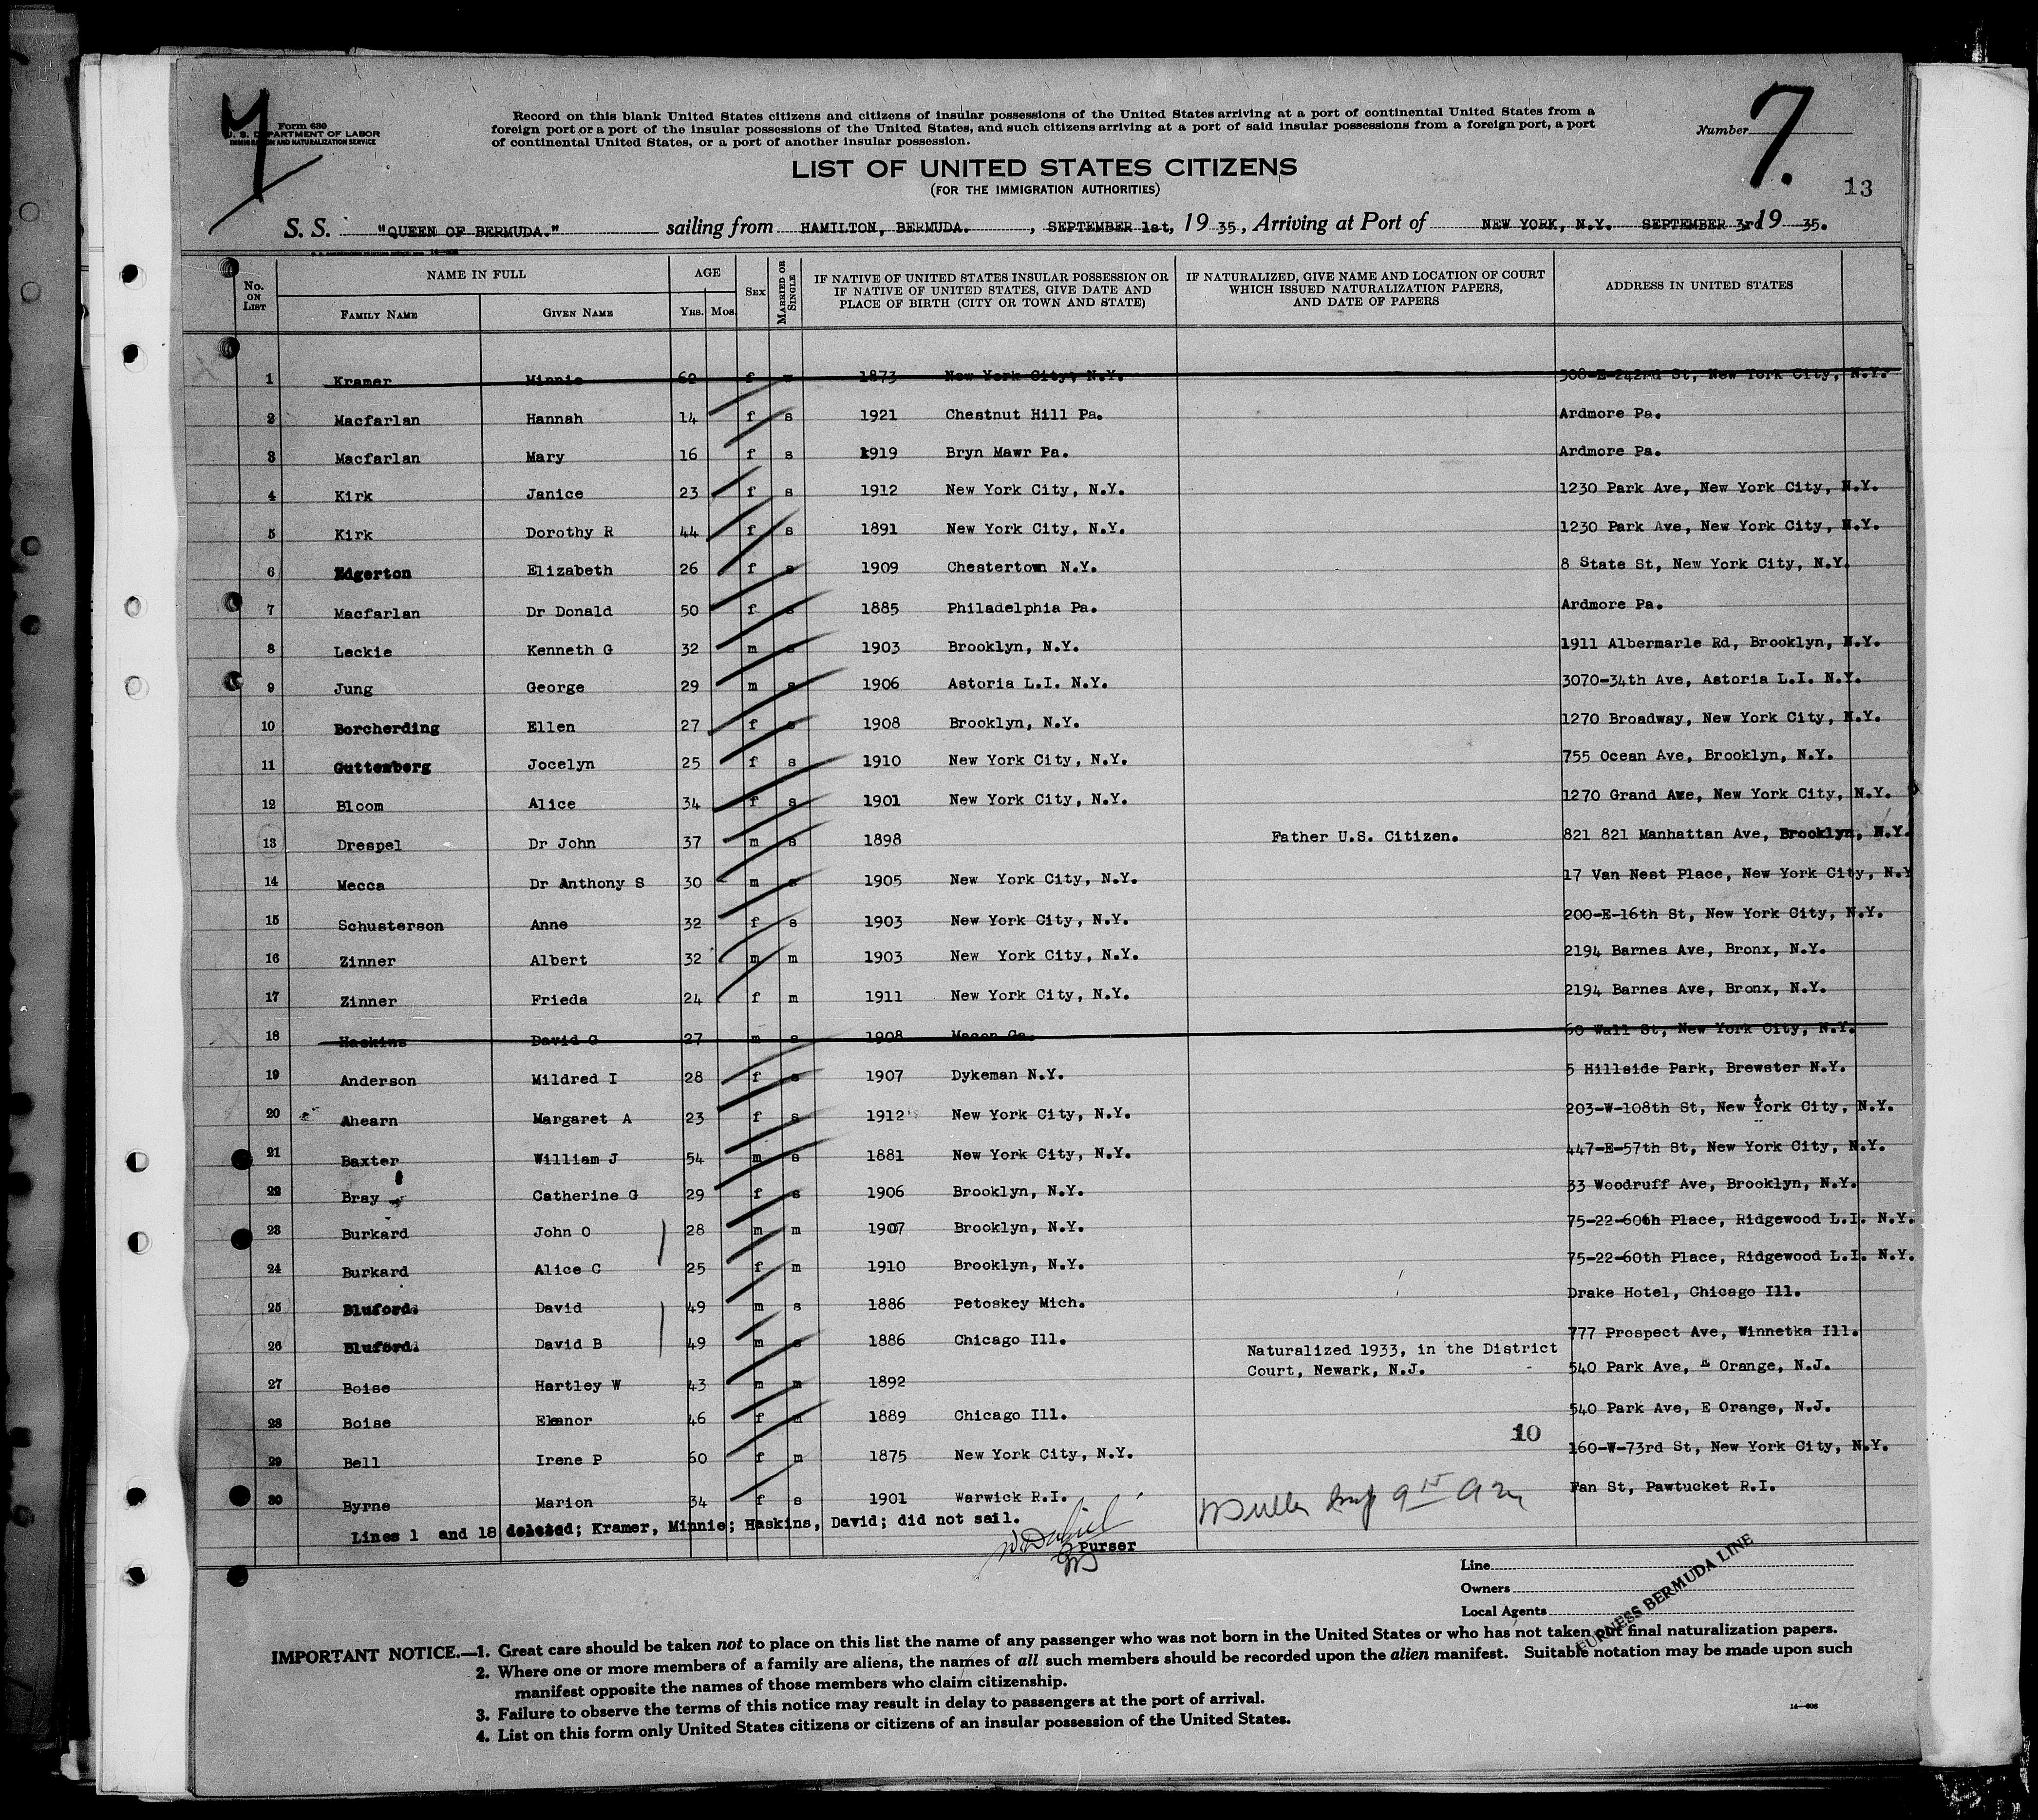 7
7.
Form 630
U. S. DEPARTMENT OF LABOR
IMMIGRATION AND NATURALIZATION SERVICE
Record on this blank United States citizens and citizens of insular possessions of the United States arriving at a port of continental United States from a
foreign port or a port of the insular possessions of the United States, and such citizens arriving at a port of said insular possessions from a foreign port, a port
of continental United States, or a port of another insular possession.
Number
13
LIST OF UNITED STATES CITIZENS
(FOR THE IMMIGRATION AUTHORITIES)
S. S. "QUEEN OF BERMUDA." sailing from HAMILTON, BERMUDA. , SEPTEMBER 1st, 19 35, Arriving at Port of NEW YORK, N.Y. SEPTEMBER 3rd 19 35.
No. ON LIST NAME IN FULL AGE SEX MARRIED OR SINGLE IF NATIVE OF UNITED STATES INSULAR POSSESSION OR IF NATIVE OF UNITED STATES, GIVE DATE AND PLACE OF BIRTH (CITY OR TOWN AND STATE) IF NATURALIZED, GIVE NAME AND LOCATION OF COURT WHICH ISSUED NATURALIZATION PAPERS, AND DATE OF PAPERS ADDRESS IN UNITED STATES
FAMILY NAME GIVEN NAME YRS. MOS.
1 Kramer Minnie 62 f 1873 New York City, N.Y. 508-E-242rd St, New York City, N.Y.
2 Macfarlan Hannah 14 f s 1921 Chestnut Hill Pa. Ardmore Pa.
3 Macfarlan Mary 16 f s 1919 Bryn Mawr Pa. Ardmore Pa.
4 Kirk Janice 23 f s 1912 New York City, N.Y. 1230 Park Ave, New York City, N.Y.
5 Kirk Dorothy R 44 f s 1891 New York City, N.Y. 1230 Park Ave, New York City, N.Y.
6 Edgerton Elizabeth 26 f s 1909 Chestertown N.Y. 8 State St, New York City, N.Y.
7 Macfarlan Dr Donald 50 f s 1885 Philadelphia Pa. Ardmore Pa.
8 Leckie Kenneth G 32 m s 1903 Brooklyn, N.Y. 1911 Albermarle Rd, Brooklyn, N.Y.
9 Jung George 29 m s 1906 Astoria L.I. N.Y. 3070-34th Ave, Astoria L.I. N.Y.
10 Borcherding Ellen 27 f s 1908 Brooklyn, N.Y. 1270 Broadway, New York City, N.Y.
11 Guttenberg Jocelyn 25 f s 1910 New York City, N.Y. 755 Ocean Ave, Brooklyn, N.Y.
12 Bloom Alice 34 f s 1901 New York City, N.Y. 1270 Grand Ave, New York City, N.Y.
13 Drespel Dr John 37 m s 1898 Father U.S. Citizen. 821 821 Manhattan Ave, Brooklyn, N.Y.
14 Mecca Dr Anthony S 30 m s 1905 New York City, N.Y. 17 Van Nest Place, New York City, N.Y
15 Schusterson Anne 32 f s 1903 New York City, N.Y. 200-E-16th St, New York City, N.Y.
16 Zinner Albert 32 m m 1903 New York City, N.Y. 2194 Barnes Ave, Bronx, N.Y.
17 Zinner Frieda 24 f m 1911 New York City, N.Y. 2194 Barnes Ave, Bronx, N.Y.
18 Haskins David G 27 m s 1908 Macon Ga. 60 Wall St, New York City, N.Y.
19 Anderson Mildred I 28 f s 1907 Dykeman N.Y. 5 Hillside Park, Brewster N.Y.
20 Ahearn Margaret A 23 f s 1912 New York City, N.Y. 203-W-108th St, New York City, N.Y.
21 Baxter William J 54 m s 1881 New York City, N.Y. 447-E-57th St, New York City, N.Y.
22 Bray Catherine G 29 f s 1906 Brooklyn, N.Y. 33 Woodruff Ave, Brooklyn, N.Y.
23 Burkard John O 28 m m 1907 Brooklyn, N.Y. 75-22-60th Place, Ridgewood L.I. N.Y.
24 Burkard Alice C 25 f m 1910 Brooklyn, N.Y. 75-22-60th Place, Ridgewood L.I. N.Y.
25 Bluford David 49 m s 1886 Petoskey Mich. Drake Hotel, Chicago Ill.
26 Bluford David B 49 m s 1886 Chicago Ill. 777 Prospect Ave, Winnetka Ill.
Naturalized 1933, in the District
Court, Newark, N.J.
27 Boise Hartley W 43 m m 1892 540 Park Ave, E Orange, N.J.
28 Boise Eleanor 46 f m 1889 Chicago Ill. 540 Park Ave, E Orange, N.J.
10
29 Bell Irene P 60 f m 1875 New York City, N.Y. 160-W-73rd St, New York City, N.Y.
30 Byrne Marion 34 f s 1901 Warwick R.I. Fan St, Pawtucket R.I.
Lines 1 and 18 deleted; Kramer, Minnie; Haskins, David; did not sail.
Purser
Line
Owners
Local Agents
FURNESS BERMUDA LINE
IMPORTANT NOTICE.—1. Great care should be taken not to place on this list the name of any passenger who was not born in the United States or who has not taken out final naturalization papers.
2. Where one or more members of a family are aliens, the names of all such members should be recorded upon the alien manifest. Suitable notation may be made upon such
manifest opposite the names of those members who claim citizenship.
3. Failure to observe the terms of this notice may result in delay to passengers at the port of arrival.
4. List on this form only United States citizens or citizens of an insular possession of the United States.
14—608